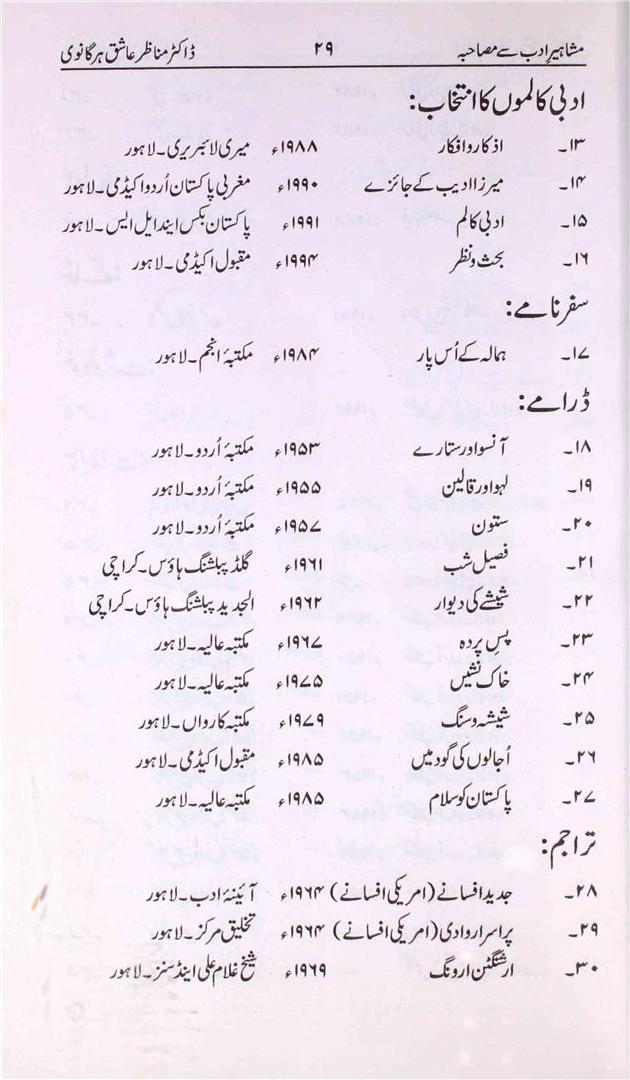 مشاہیرِ ادب سے مصاحبہ ۲۹ ڈاکٹر مناظر عاشق ہرگانوی
ادبی کالموں کا انتخاب:
۱۳۔ اذکار و افکار ۱۹۸۸ء میری لائبریری۔ لاہور
۱۴۔ میرزا ادیب کے جائزے ۱۹۹۰ء مغربی پاکستان اُردو اکیڈمی۔ لاہور
۱۵۔ ادبی کالم ۱۹۹۱ء پاکستان بکس اینڈ ایل ایس۔ لاہور
۱۶۔ بحث و نظر ۱۹۹۴ء مقبول اکیڈمی۔ لاہور
سفر نامے:
۱۷۔ ہمالہ کے اُس پار ۱۹۸۴ء مکتبۂ انجم۔ لاہور
ڈرامے:
۱۸۔ آنسو اور ستارے ۱۹۵۳ء مکتبۂ اُردو۔ لاہور
۱۹۔ لہو اور قالین ۱۹۵۵ء مکتبۂ اُردو۔ لاہور
۲۰۔ ستون ۱۹۵۷ء مکتبۂ اُردو۔ لاہور
۲۱۔ فصیل شب ۱۹۶۱ء گلڈ پبلشنگ ہاؤس۔ کراچی
۲۲۔ شیشے کی دیوار ۱۹۶۲ء الجدید پبلشنگ ہاؤس۔ کراچی
۲۳۔ پسِ پردہ ۱۹۶۷ء مکتبہ عالیہ۔ لاہور
۲۴۔ خاک نشیں ۱۹۷۵ء مکتبہ عالیہ۔ لاہور
۲۵۔ شیشہ و سنگ ۱۹۷۹ء مکتبہ کارواں۔ لاہور
۲۶۔ اُجالوں کی گود میں ۱۹۸۵ء مقبول اکیڈمی۔ لاہور
۲۷۔ پاکستان کو سلام ۱۹۸۵ء مکتبہ عالیہ۔ لاہور
تراجم:
۲۸۔ جدید افسانے (امریکی افسانے) ۱۹۶۴ء آئینۂ ادب۔ لاہور
۲۹۔ پراسرار وادی (امریکی افسانے) ۱۹۶۴ء تخلیق مرکز۔ لاہور
۳۰۔ ارشگٹن ارونگ ۱۹۶۹ء شیخ غلام علی اینڈ سنز۔ لاہور